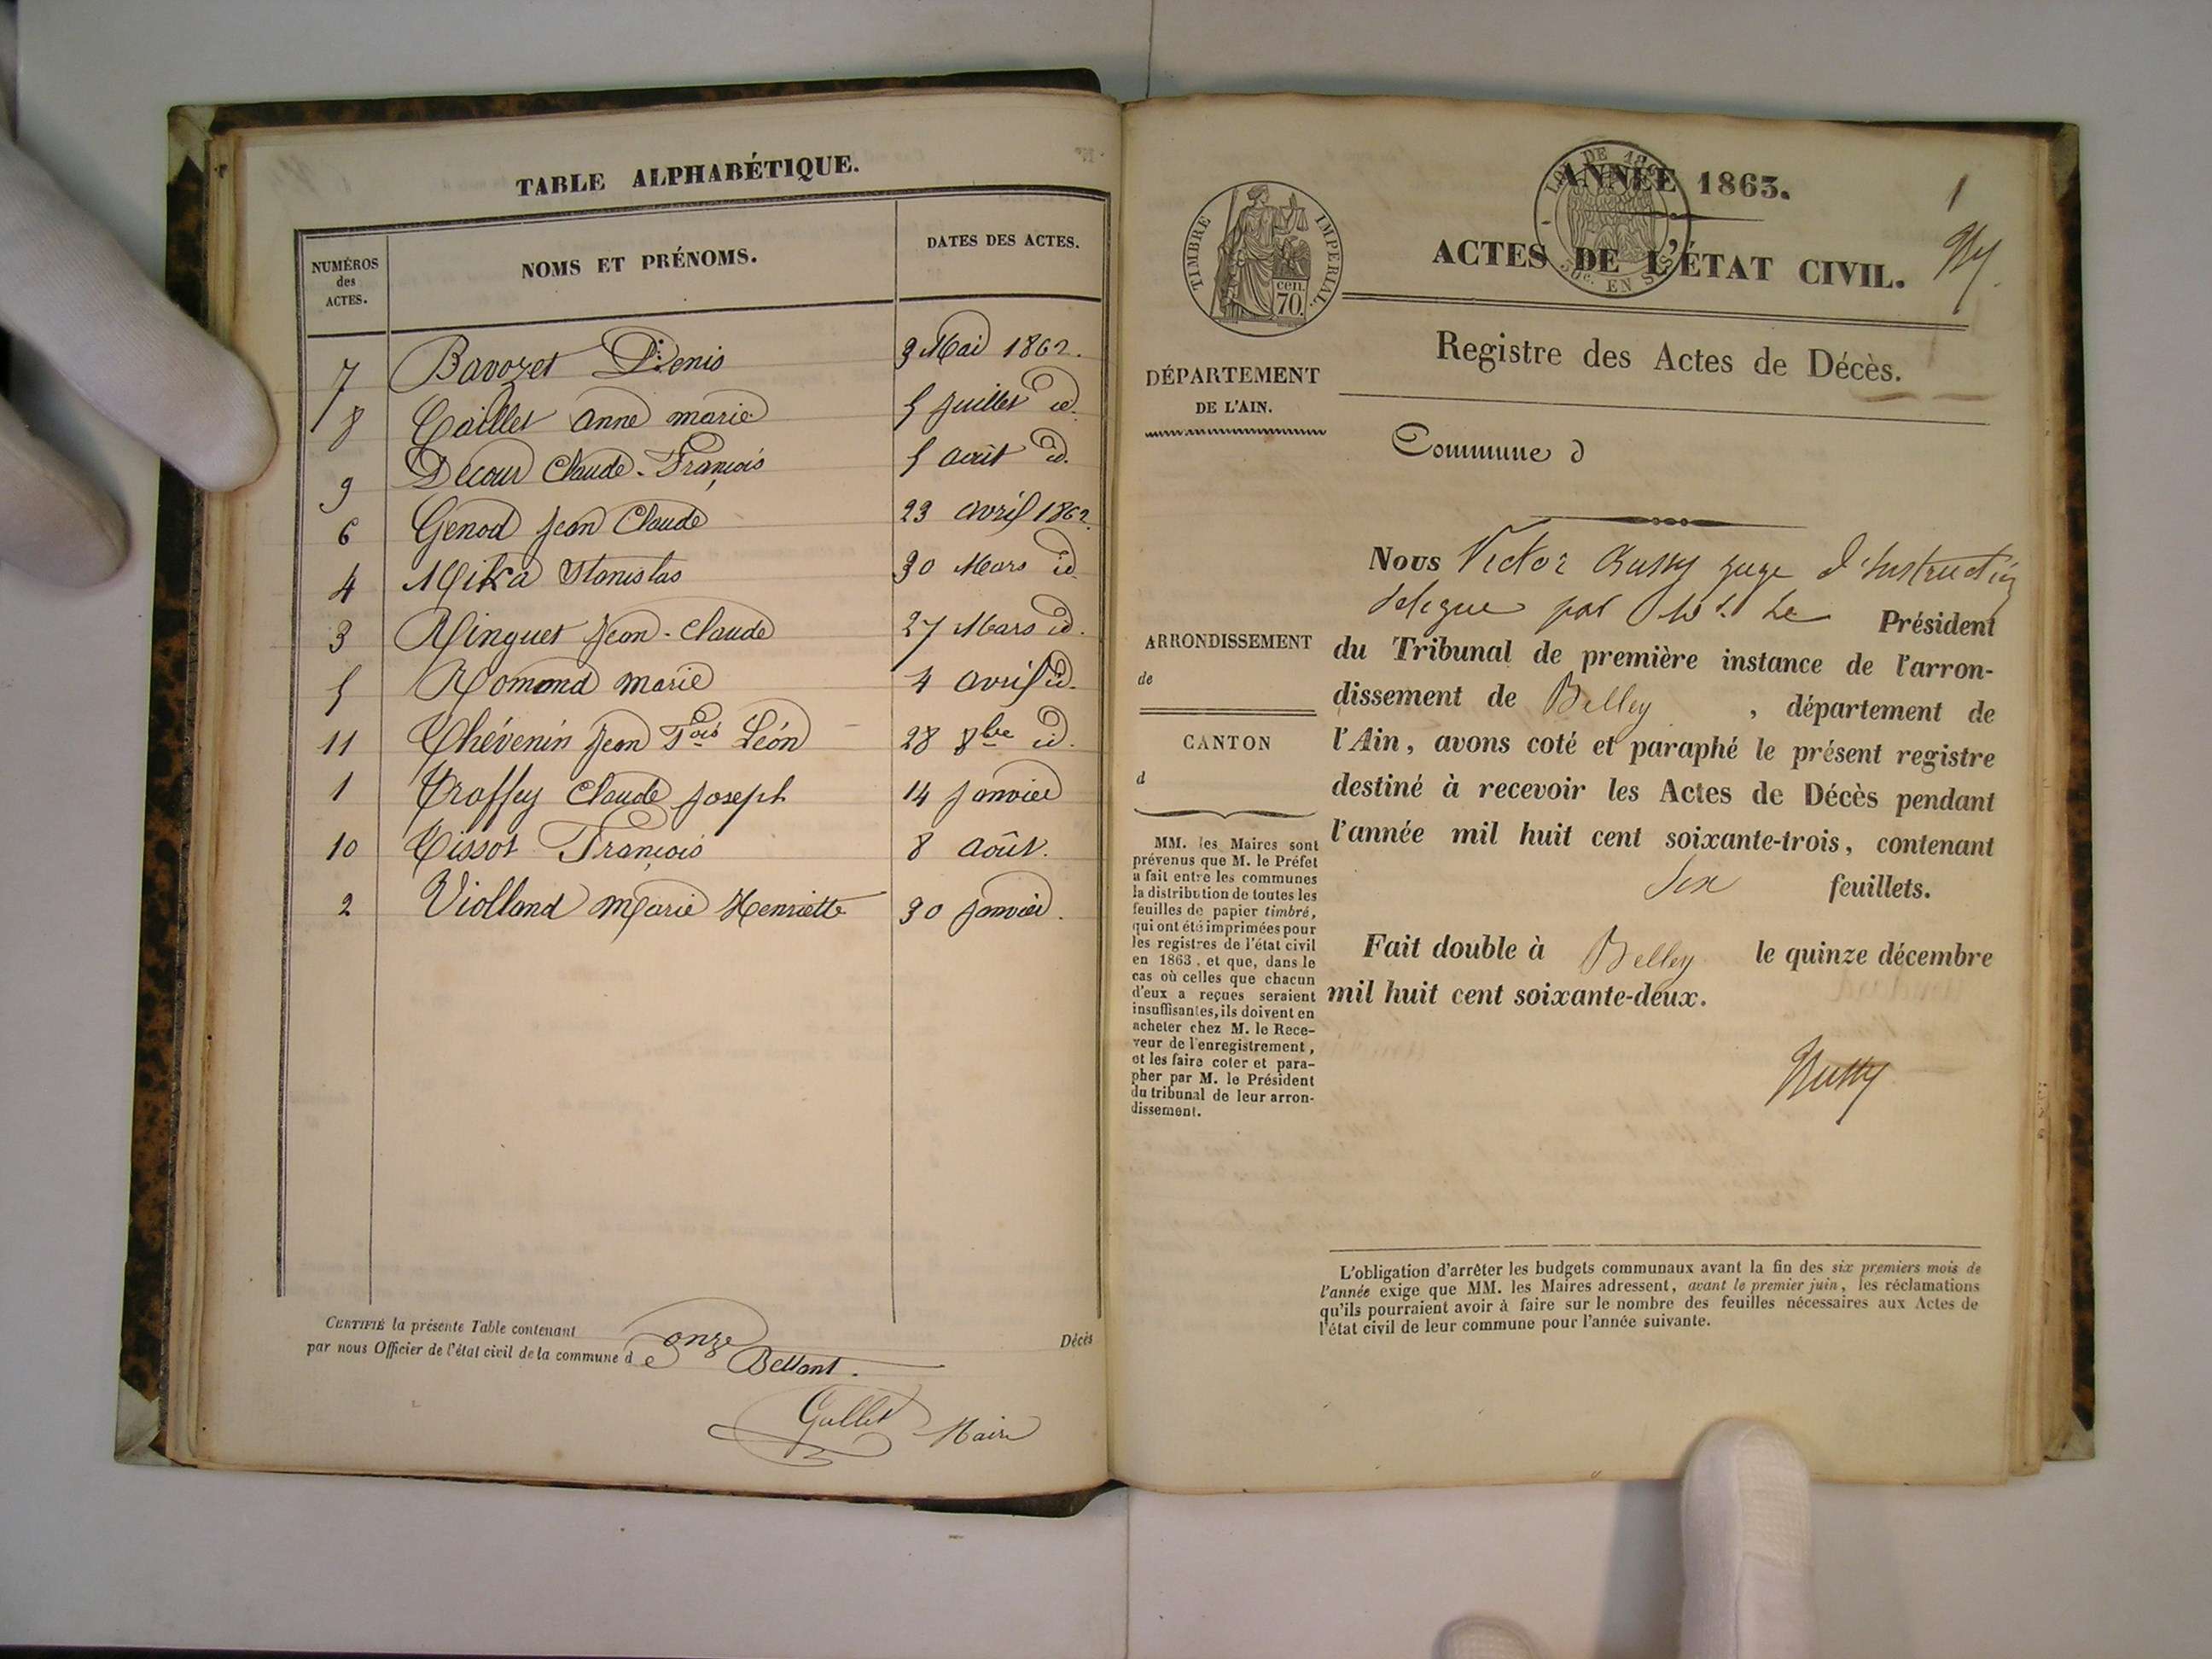 TABLE ALPHABÉTIQUE.
NUMÉROS des ACTES. NOMS ET PRÉNOMS. DATES DES ACTES.
7 Bavozet Denis 3 Mai 1862.
8 Caillet anne marie 5 juillet id.
9 Decour Claude-François 5 août id.
6 Genod jean Claude 23 avril 1862
4 Mika Stanislas 30 Mars id
3 Ringuet jean-Claude 27 Mars id.
5 Romand marie 4 avril id.
11 Thévenin jean Fois Léon 28 8bre id.
1 Troffey Claude joseph 14 janvier
10 Tissot François 8 août.
2 Violland marie Henriette 30 janvier.
CERTIFIÉ la présente Table contenant onze Décès
par nous Officier de l'état civil de la commune de Belmont.
Gullet Maire
LOI DE 1862
50c. EN SUS
TIMBRE IMPERIAL.
cen. 70.
1
ANNÉE 1863.
ACTES DE L'ÉTAT CIVIL.
Registre des Actes de Décès.
DÉPARTEMENT
DE L'AIN.
Commune d
ARRONDISSEMENT
de
CANTON
d
MM. les Maires sont
prévenus que M. le Préfet
a fait entre les communes
la distribution de toutes les
feuilles de papier timbré,
qui ont été imprimées pour
les registres de l'état civil
en 1863, et que, dans le
cas où celles que chacun
d'eux a reçues seraient
insuffisantes, ils doivent en
acheter chez M. le Rece-
veur de l'enregistrement,
et les faire coter et para-
pher par M. le Président
du tribunal de leur arron-
dissement.
Nous Victor juge d'Instruction
délégué par Mr. Le Président
du Tribunal de première instance de l'arron-
dissement de Belley, département de
l'Ain, avons coté et paraphé le présent registre
destiné à recevoir les Actes de Décès pendant
l'année mil huit cent soixante-trois, contenant
Six feuillets.
Fait double à Belley le quinze décembre
mil huit cent soixante-deux.
L'obligation d'arrêter les budgets communaux avant la fin des six premiers mois de
l'année exige que MM. les Maires adressent, avant le premier juin, les réclamations
qu'ils pourraient avoir à faire sur le nombre des feuilles nécessaires aux Actes de
l'état civil de leur commune pour l'année suivante.